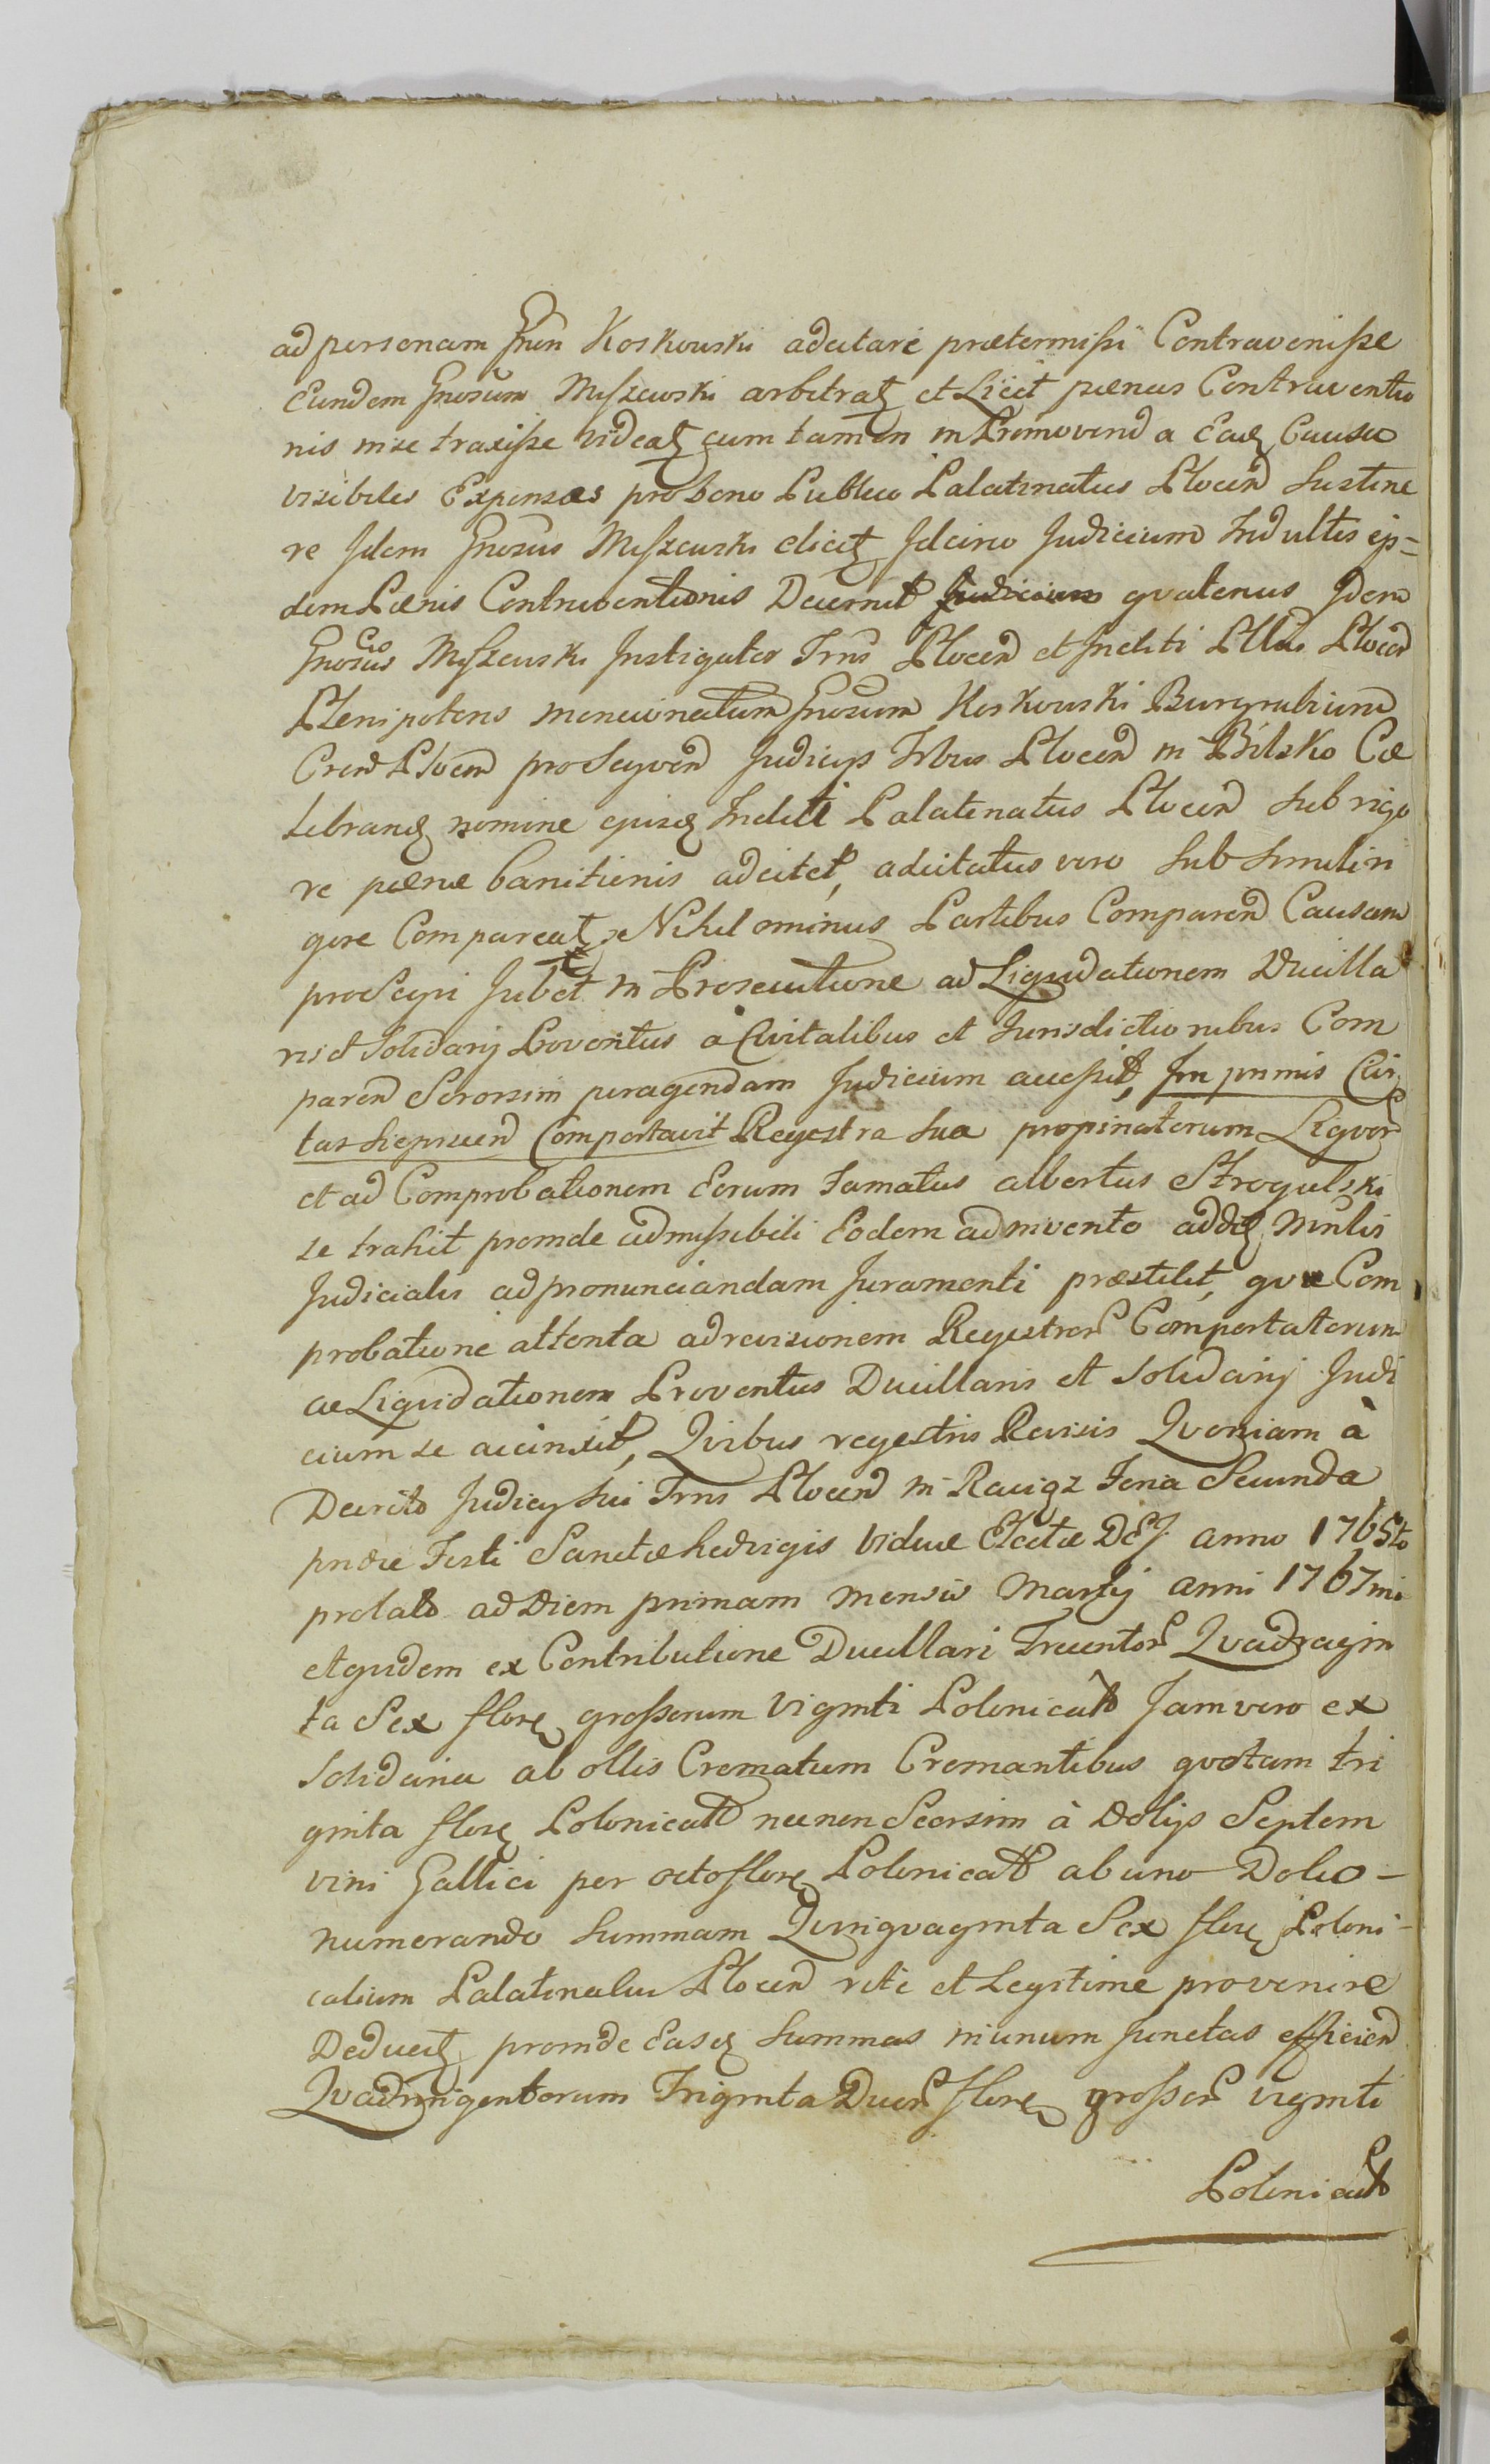 ad personam Gnen Koskowski adcitari prætermissi Contravenisse
Eundem Gnosum Miszewski arbitratʒ et Licet pænas Contraventio
nis in se traxisse videatʒ cum tamen in Promovend a Eadʒ Causa
visibiles Expensas pro bono Publico Palatinatus Plocen Sustine
re Idem Gnosus Miszewski dicitʒ Idcirco Judicium Indultis eis=
dem Pænis Contraventionis Decernit quatenus Idem
Gnosus Miszewski Instigator Trns Plocen et Incliti Pllus Plocen
Plenipotens mencionatum Gnosum Koskowski Burgrabium
Cren Plocen pro Seqven Judicijs Trbus Plocen in Bilsko Ce
lebrandʒ nomine ejusdʒ Incliti Palatinatus Plocen Sub rigo
re pænæ banitionis adcitet, adcitatus vero Sub Simili ri
gore Compareatʒ Nihilominus Partibus Comparen Causam
proSeqvi Jubet in Prosecutione ad Liqvidationem Ducilla
ris et Solidarij Proventus a Civitatibus et Jurisdictionibus Com
paren Seorsim peragendam Judicium accessit, Im primis Civi
tas Sieprcen Comportavit Regestra Sua propinatorum Liqvor
et ad Comprobationem Eorum Famatus albertus Strogulski
se trahit proinde admissibili Eodem ad invento addʒ Minlis
Judicialis ad pronunciandam Juramenti præstitit, qva Com
probatione attenta ad revisionem Regestror Comportatorum
ac Liqvidationem Proventus Ducillaris et Solidarij Judi
cium se accinxit, Qvibus regestris Revisis Qvoniam à
Decreto Judicij Sui Trns Plocen in Raciąz Feria Secunda
pridie Festi Sanctæ hedvigis viduæ Electæ DEJ anno 1765to
prolato ad Diem primam mensis Martij anni 1767mi
et qvidem ex Contributione Ducillari Trecentor Qvadragin
ta Sex florʒ grossorum viginti Polonicał Jam vero ex
Solidaria ab ollis Crematum Cremantibus qvotam tri
ginta florʒ Polonicał necnon Seorsim à Dolijs Septem
vini Gallici per octo florʒ Polonicał ab uno Dolio –
numerando Summam Qvinqvaginta Sex florʒ Poloni-
calium Palatinatui Plocen rite et Legitime provenire
Deducitʒ proinde Easdʒ Summas in unum junctas efficien
Qvadringentorum Triginta Duor florʒ grossor viginti
Polonicał